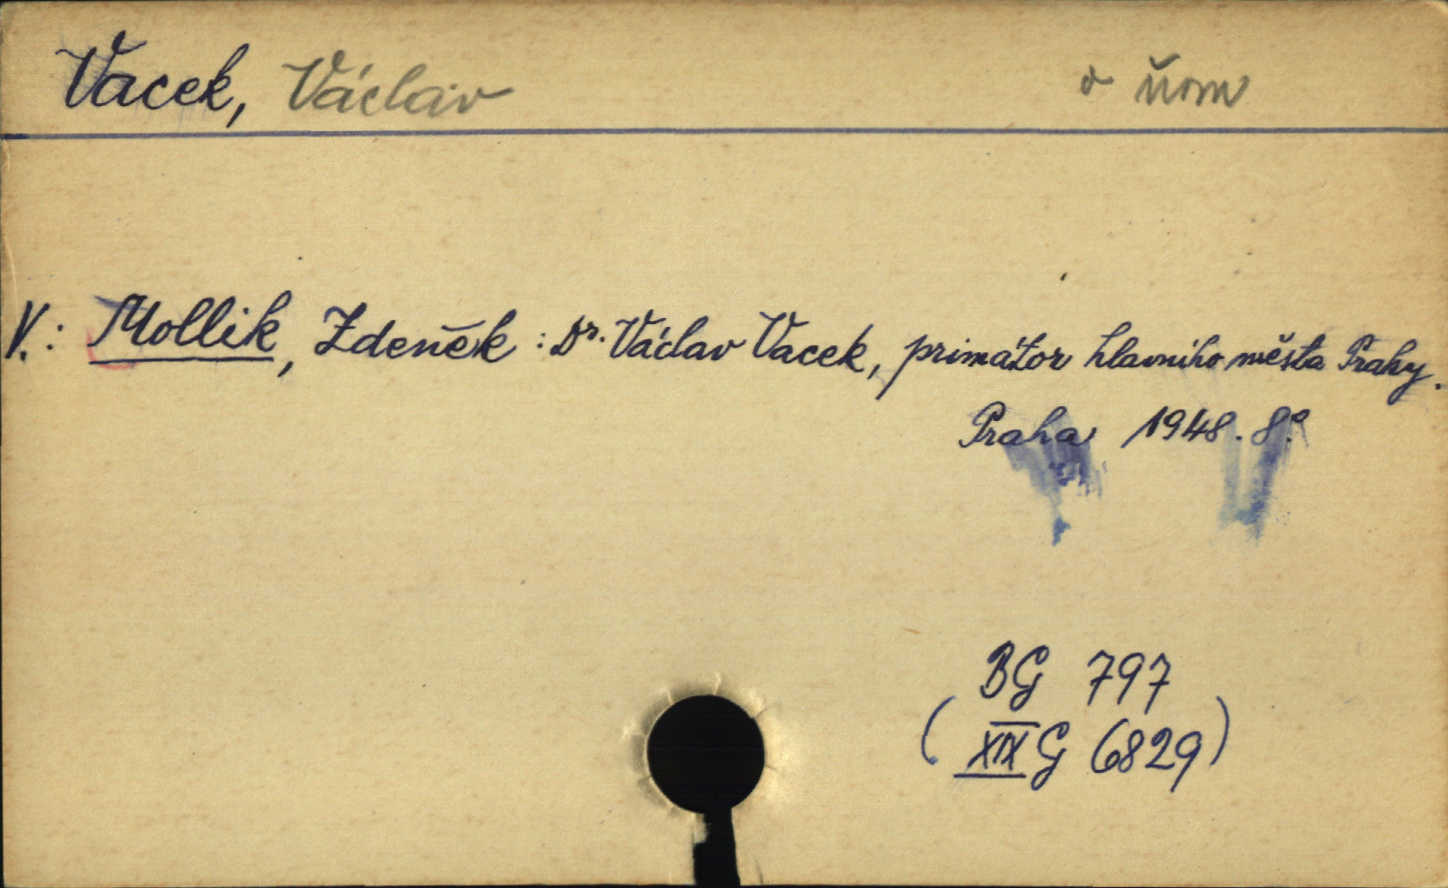 Vacek, Václav o ňom
V.: Mollik, Zdeněk: Dr. Václav Vacek, primátor hlavního města Prahy.
Praha 1948. 8°.
BG 797
(XIX G 6829)